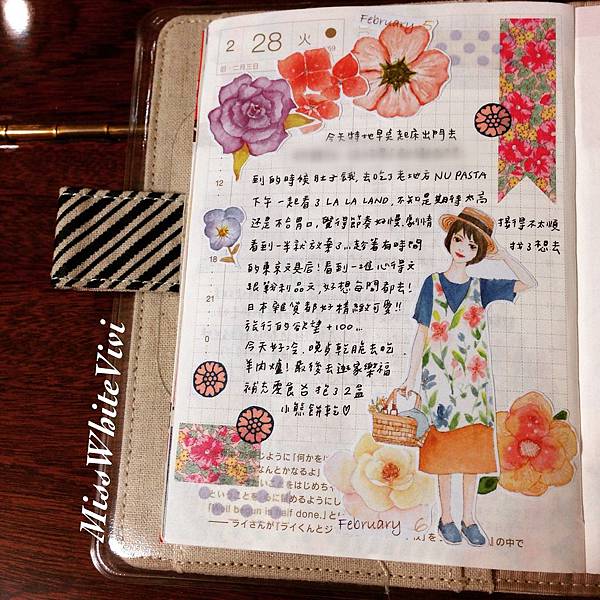 February 5
2 28 火
59
旧・二月三日
今天特地早起床出門去
到的時候肚子餓, 去吃了老地方 NU PASTA
下午一起看了 LA LA LAND, 不知是期待太高
還是不合胃口, 覺得節奏好慢, 劇情
接得不太順
看到一半就放棄了...趁著有時間
找了想去
的東京文具店! 看到一堆心得文
跟戰利品文, 好想每間都去!
日本雜貨都好精緻可愛!!
旅行的欲望 +100...
今天好冷, 晚上乾脆去吃
羊肉爐! 最後去逛家樂福
補充零食台 抱了2盒
小熊餅乾♡
12
18
0
じように「何かをし
ちなんとかなるよ」
いことをはじめち
ということを、心に留めるようにし
「Well begun is half done.」と
February 6
——ライさんが『ライくんとジ
』の中で
MissWhiteVivi